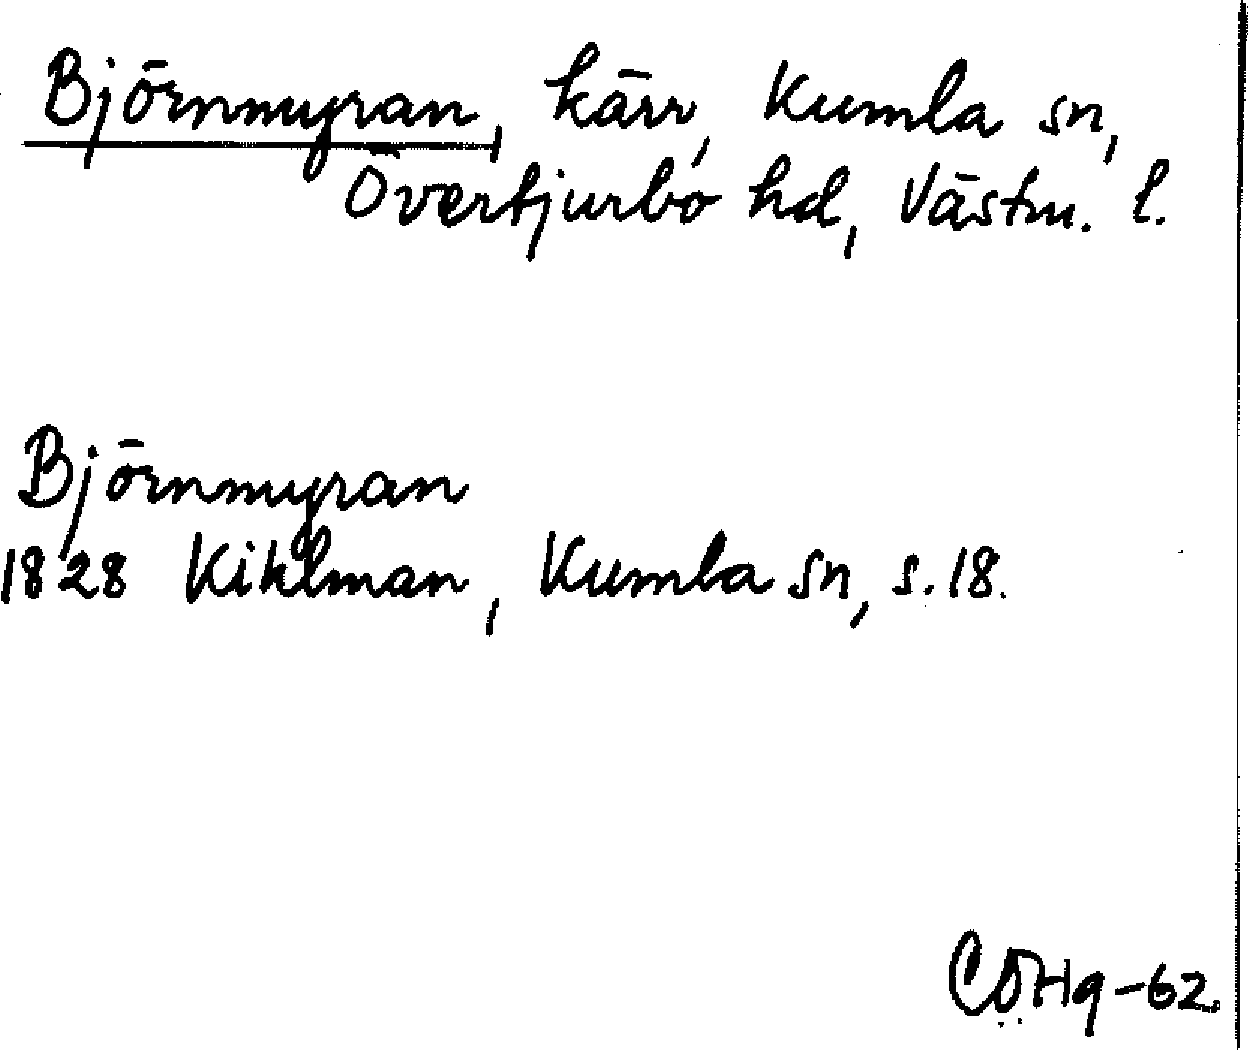 Björnmyran, kärr, Kumla sn,
Övertjurbo hd, Västm. l.
Björnmyran
1828 Kihlman, Kumla sn, s. 18.
CÖHg-62.